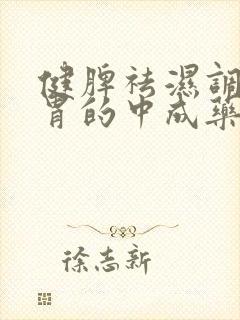 健脾祛濕調
胃的中成藥
徐志新